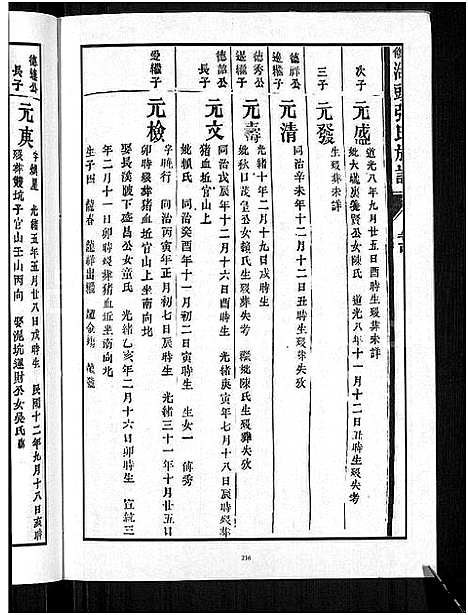 張氏族譜
次子
元盛
道光八年九月廿五日酉時生歿葬未詳
公女陳氏 道光八年十一月十二日丑時生歿失考
三子
元發
生歿葬未詳
德祥公
繼子
元清
同治辛未年十二月十二日丑時生歿葬失攷
德秀公
繼子
元壽
光緒十年二月十九日戌時生
公女賴氏生歿葬失考 陳氏生歿葬失攷
長子
元文
同治戊辰年十二月十六日酉時生 光緒庚寅年七月十八日辰時歿葬
豬血坵官山上
妣賴氏 同治癸酉年十一月初二日寅時生 生女一 傳秀
繼子
元檢
字 行 同治丙寅年正月初七日辰時生 光緒三十一年十月廿五日
卯時歿葬豬血坵官山上坐南向北
娶長溪陂下盛昌公女童氏 光緒乙亥年二月十六日卯時生 宣統三
年二月十一日卯時歿葬豬血坵坐南向北
生子四
德達公
長子
元典
光緒五年五月廿八日戌時生 民國十二年九月十八日亥時
歿葬雙坑子官山壬山丙向 娶泥坑運財公女吳氏
216